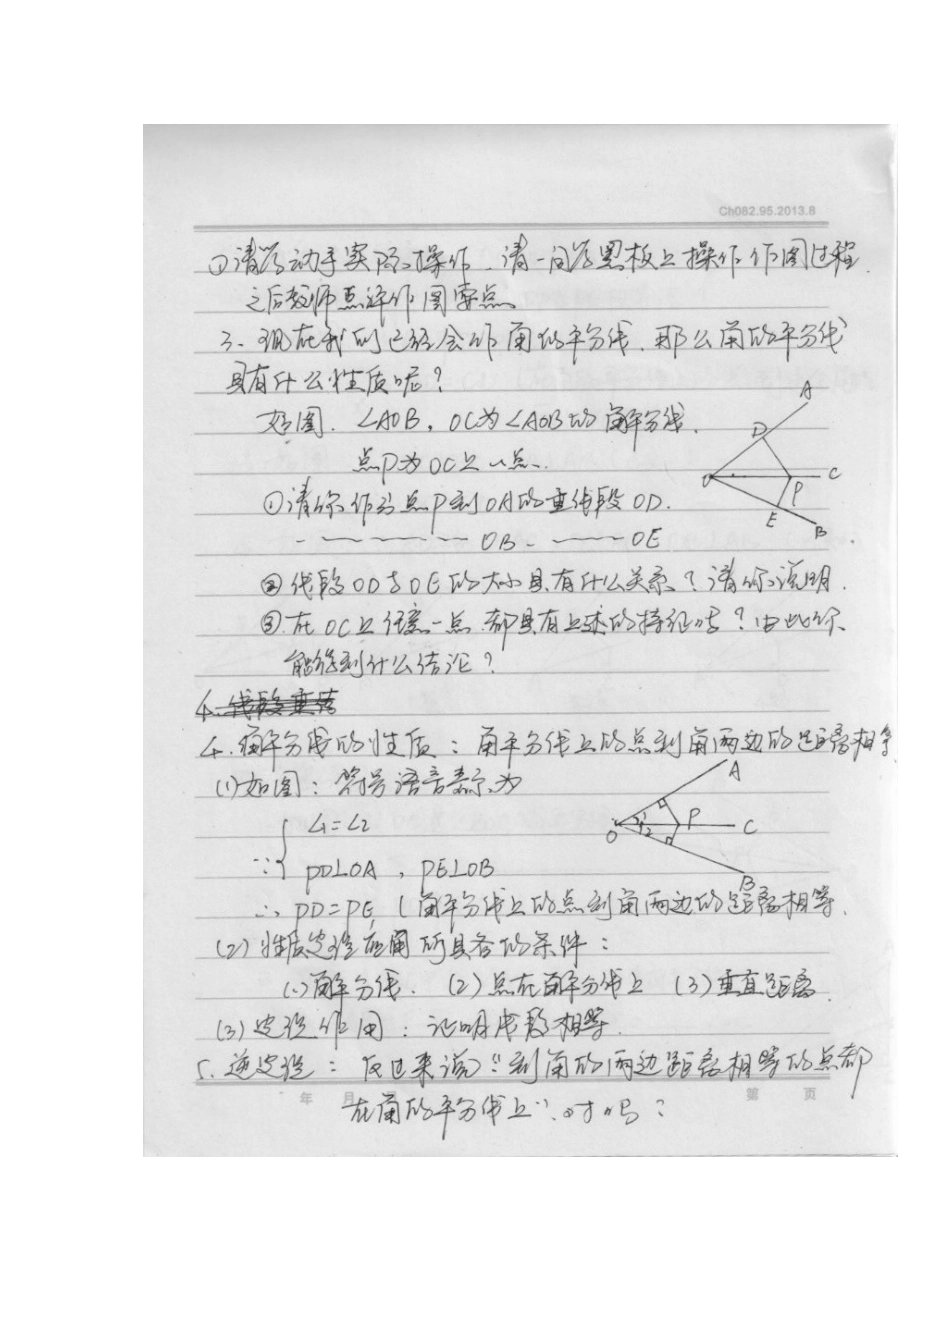 Ch082.95.2013.8
①请学动手实际操作、请一同学黑板上操作作图过程.
之后教师点评作图要点.
3、现在我们已经会作角的平分线,那么角的平分线
具有什么性质呢?
A
如图. ∠AOB, OC为∠AOB的角平分线.
D
点P为OC上一点.
O P C
①请你作出点P到OA的垂线段OD.
E
B
OB. OE
②线段OD与OE的大小具有什么关系?请你说明.
③在OC上任意一点都具有上述的特征吗?由此你
能得到什么结论?
4.线段垂
4.角平分线的性质:角平分线上的点到角两边的距离相等
A
(1)如图:符号语言表示为
∠1=∠2
O 1 2 P C
∵{
PD⊥OA , PE⊥OB
B
∴ PD=PE (角平分线上的点到角两边的距离相等.
(2)性质定理应用所具备的条件:
(1)角平分线. (2)点在角平分线上 (3)垂直距离
(3)定理作用:证明线段相等.
5.逆定理:反过来说"到角的两边距离相等的点都
年 月 第 页
在角的平分线上",对吗?